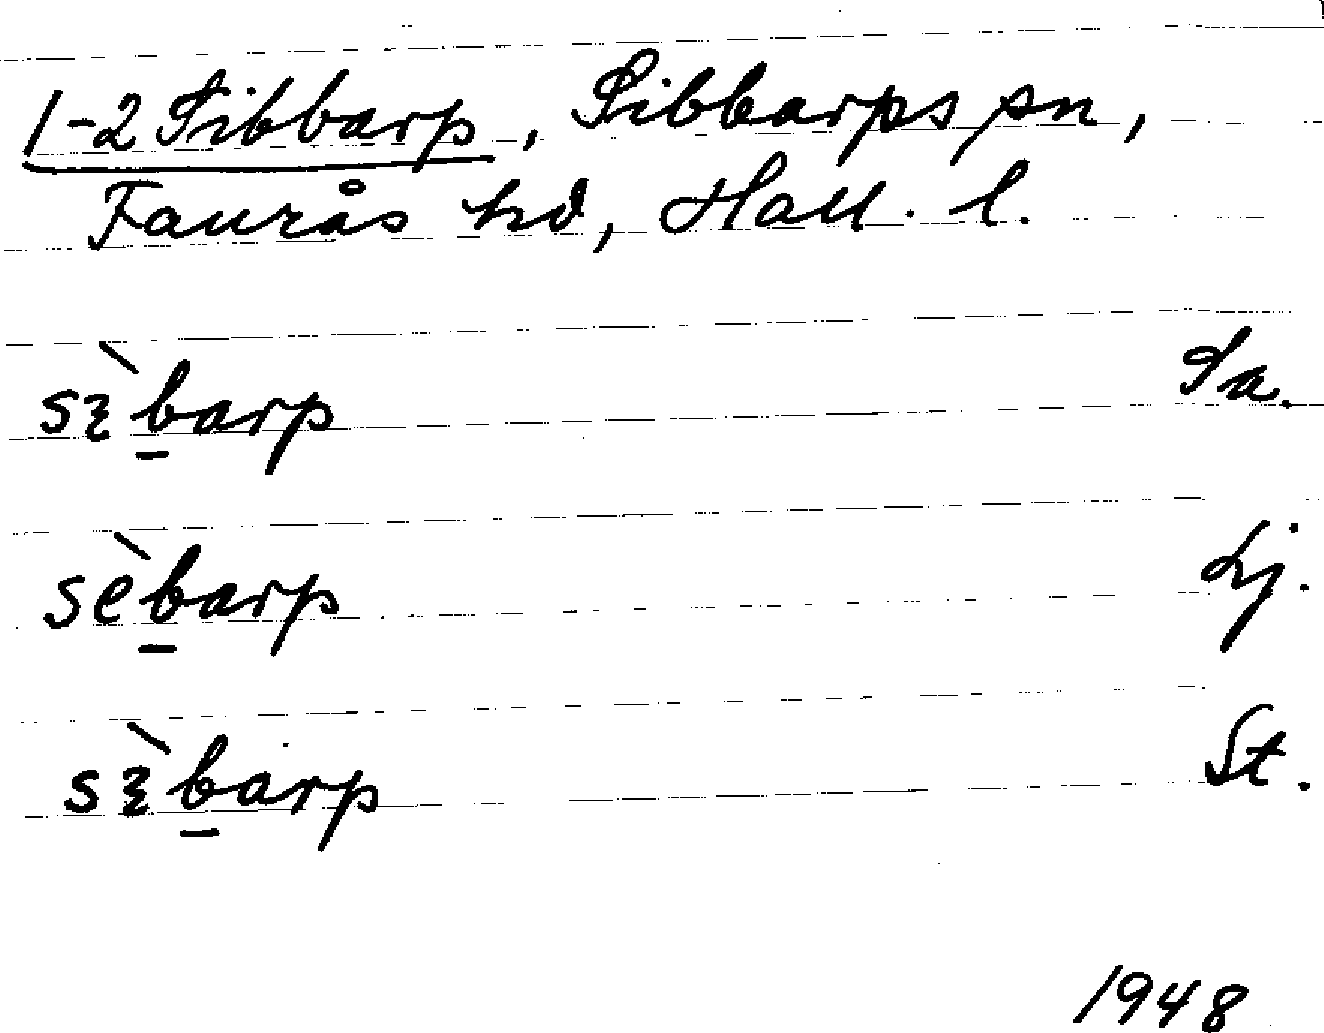 1-2 Sibbarp, Sibbarps sn,
Faurås hd, Hall. l.
sèbarp Sa.
sèbarp Lj.
sèbarp St.
1948